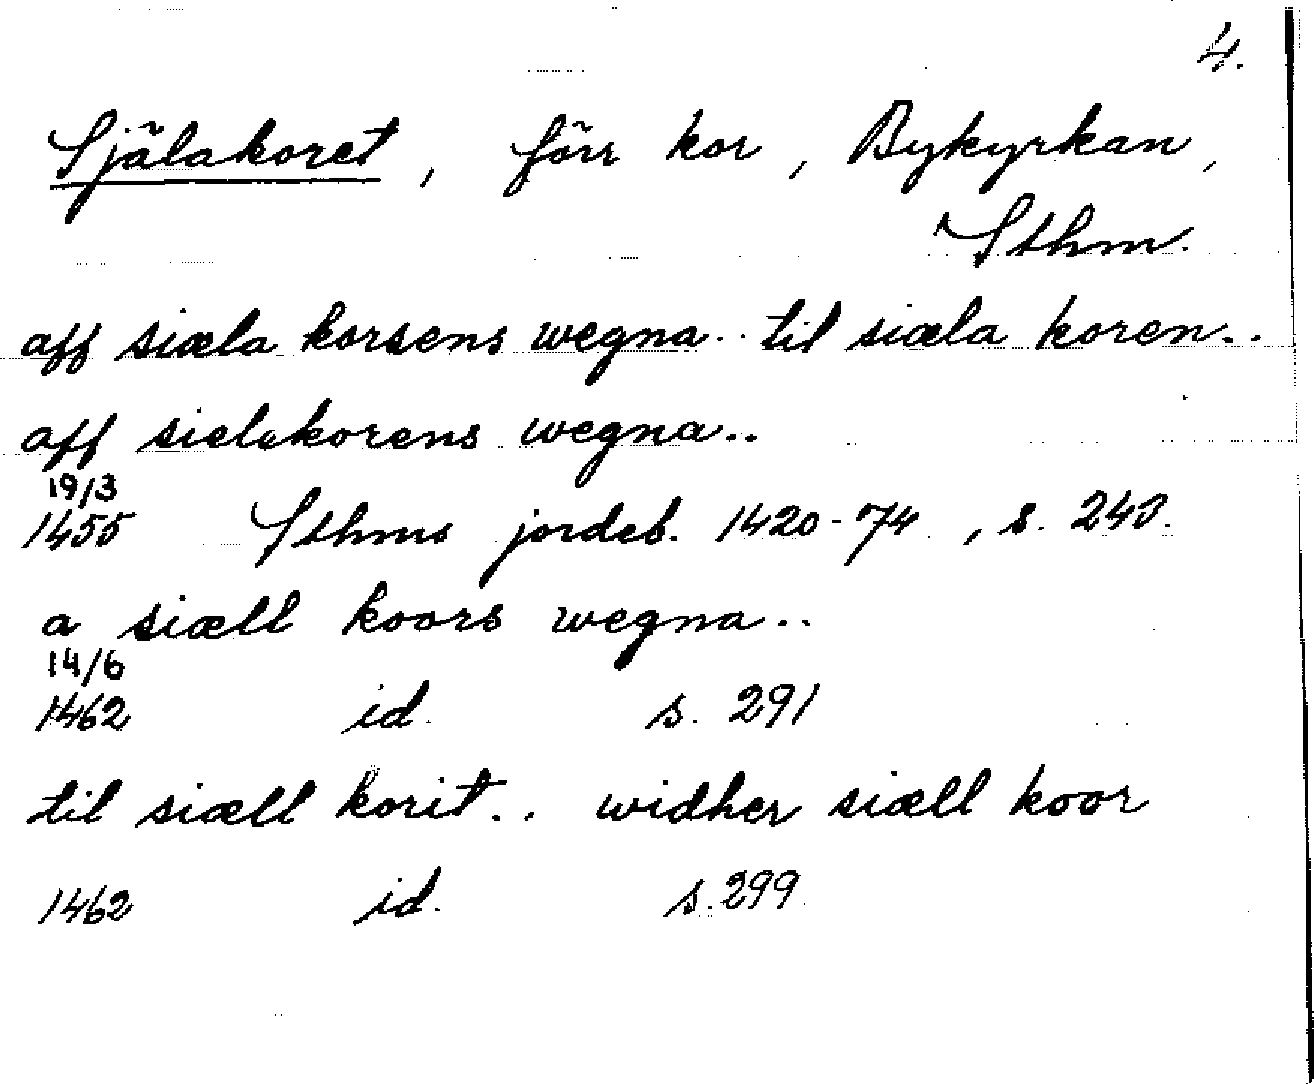 4.
Själakoret, förr kor, Bykyrkan,
Sthm.
aff siæla korsens wegna.. til siæla koren..
aff sielakorens wegna..
19/3
1455 Sthms jordeb. 1420-74, s. 240.
a siæll koors wegna..
14/6
1462 id. s. 291
til siæll korit.. widher siæll koor
1462 id. s. 299